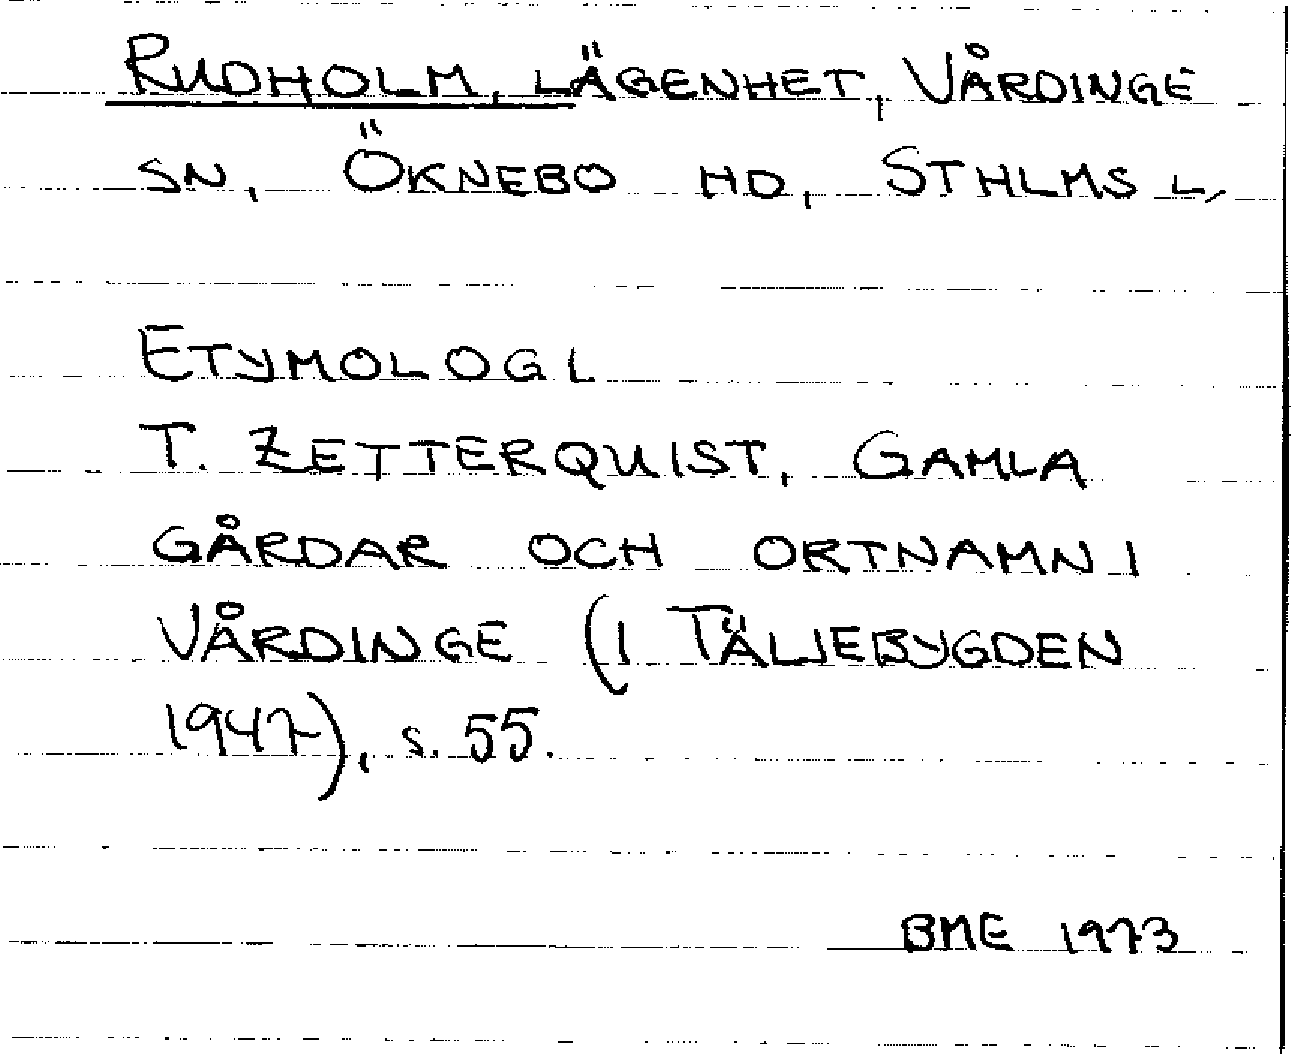 RUDHOLM, LÄGENHET, VÅRDINGE
SN, ÖKNEBO HD, STHLMS L,
ETYMOLOGI
T. ZETTERQUIST, GAMLA
GÅRDAR OCH ORTNAMN I
VÅRDINGE (I TÄLJEBYGDEN
1947), s. 55.
BME 1973